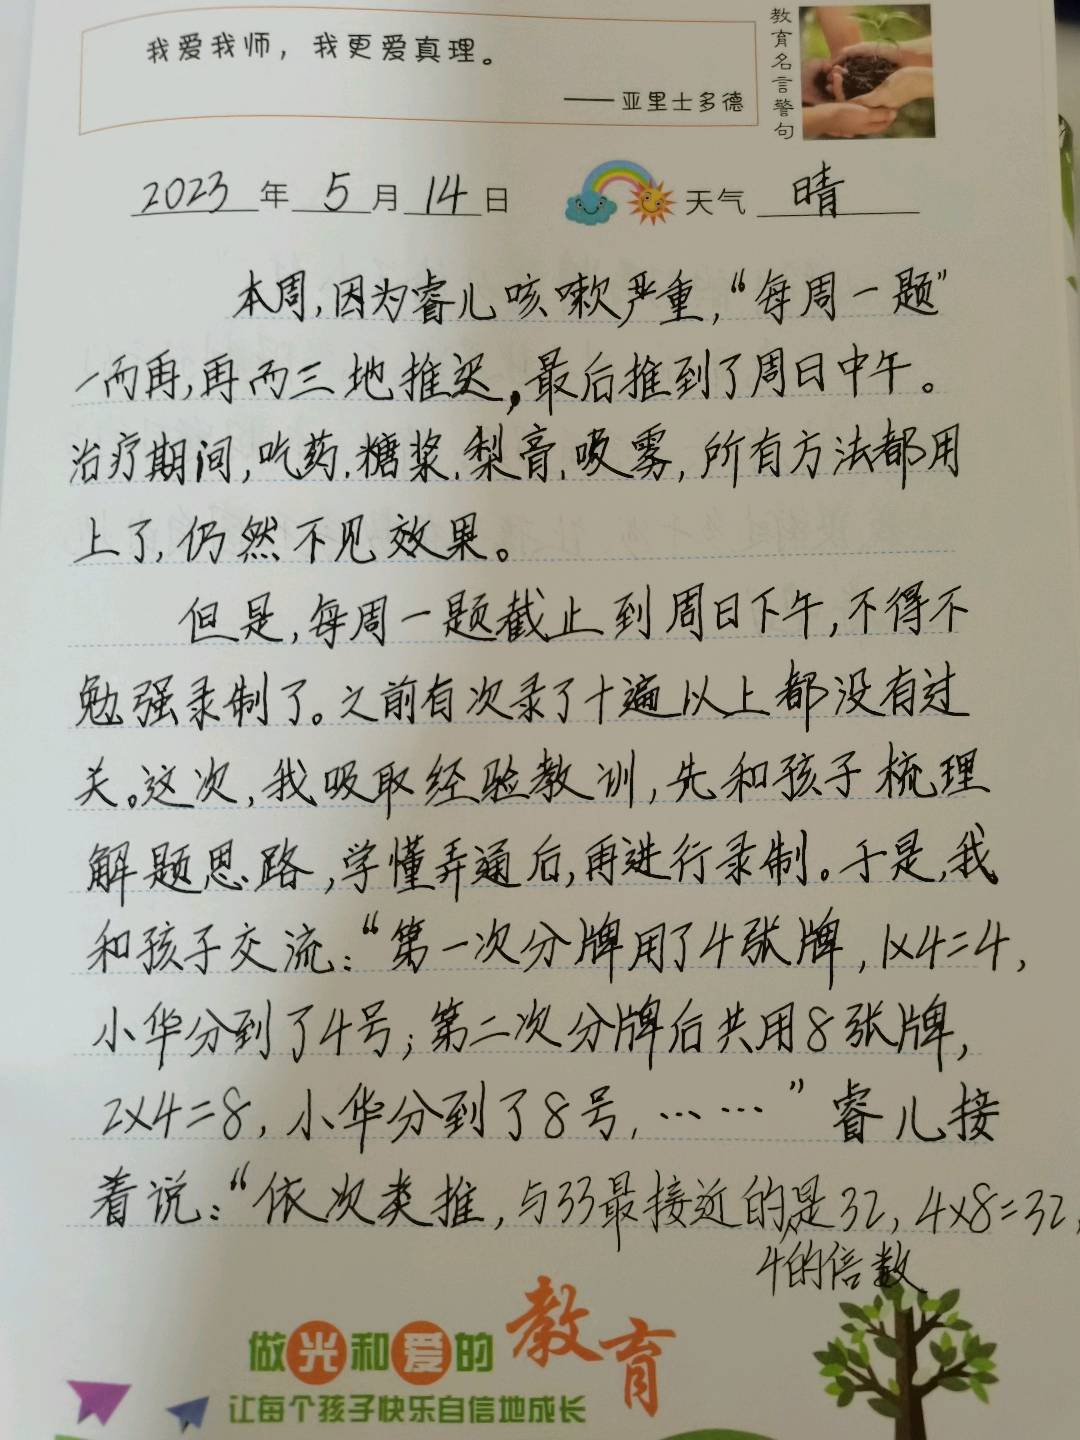 我爱我师，我更爱真理。
——亚里士多德
教育名言警句
2023年5月14日 天气 晴
本周,因为睿儿咳嗽严重,“每周一题”
一而再,再而三地推迟,最后推到了周日中午。
治疗期间,吃药.糖浆.梨膏.吸雾,所有方法都用
上了,仍然不见效果。
但是,每周一题截止到周日下午,不得不
勉强录制了。之前有次录了十遍以上都没有过
关。这次,我吸取经验教训,先和孩子梳理
解题思路,学懂弄通后,再进行录制。于是,我
和孩子交流:“第一次分牌用了4张牌,1x4=4,
小华分到了4号;第二次分牌后共用8张牌,
2x4=8,小华分到了8号,……”睿儿接
着说:“依次类推,与33最接近的是32,4x8=32,
4的倍数
做光和爱的教育
让每个孩子快乐自信地成长